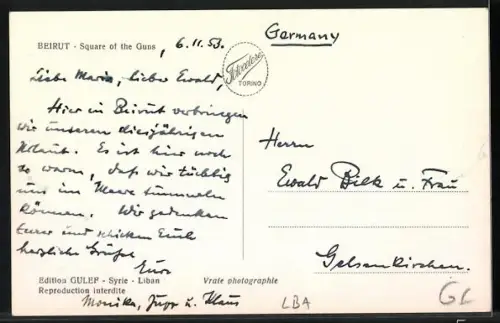 BEIRUT - Square of the Guns , 6.11.53.
Germany
Fotocelere
TORINO
Liebe Maria, lieber Ewald,
Hier in Beirut verbringen
wir unseren diesjährigen
Urlaub. Es ist hier noch
so warm, daß wir tüchtig
uns im Meere tummeln
können. Wir gedenken
Eurer und schicken Euch
herzliche Grüße
Eure
Monika, Jupp u. Klaus
Herrn
Ewald Bilk u. Frau
Gelsenkirchen.
Edition GULEF - Syrie - Liban
Reproduction interdite
Vraie photographie
LBA
GL